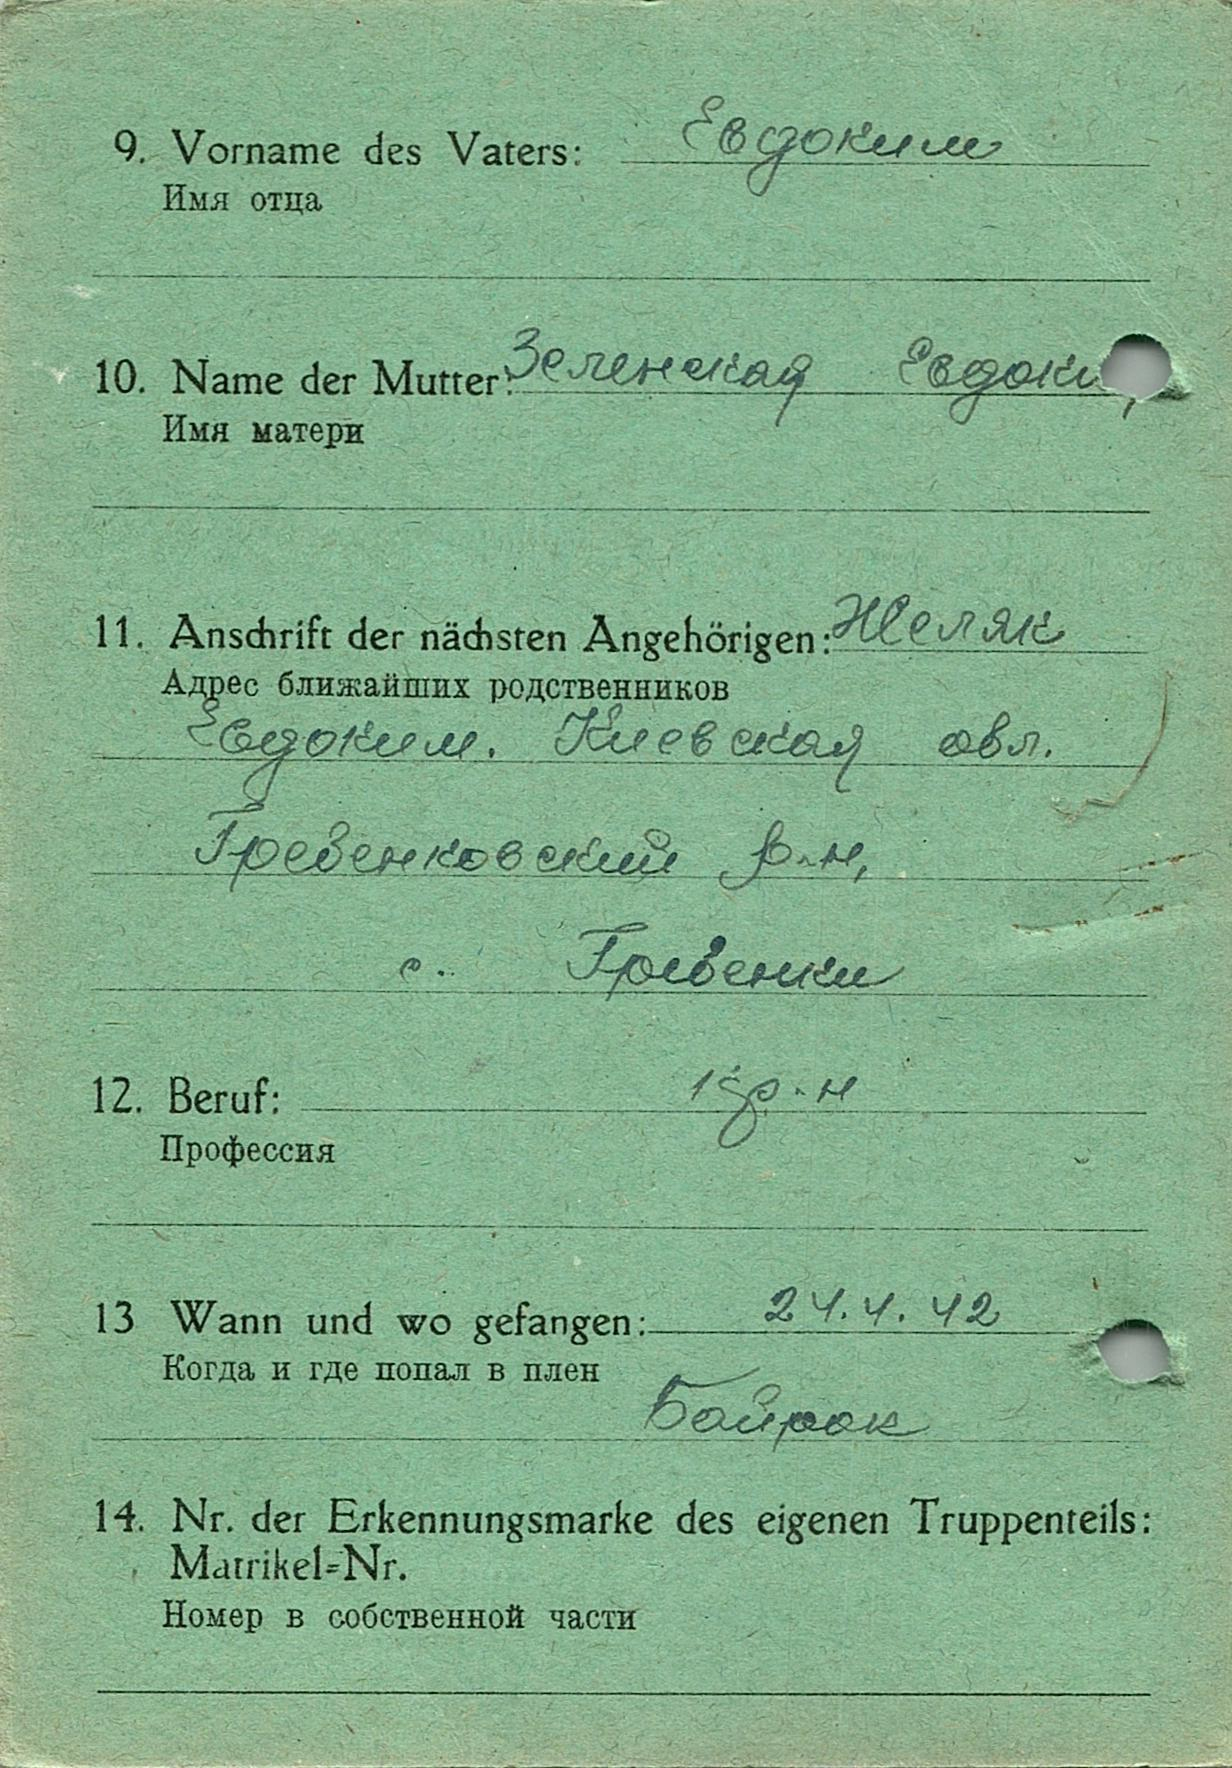 9. Vorname des Vaters: Евдоким
Имя отца
10. Name der Mutter: Зеленская
Имя матери
11. Anschrift der nächsten Angehörigen: Желяк
Адрес ближайших родственников
Евдоким. Киевская обл.
Гребенковский р-н,
с. Гребенки
12. Beruf: кр-н
Профессия
13 Wann und wo gefangen:
Когда и где попал в плен
Байрак
14. Nr. der Erkennungsmarke des eigenen Truppenteils:
Matrikel=Nr.
Номер в собственной части